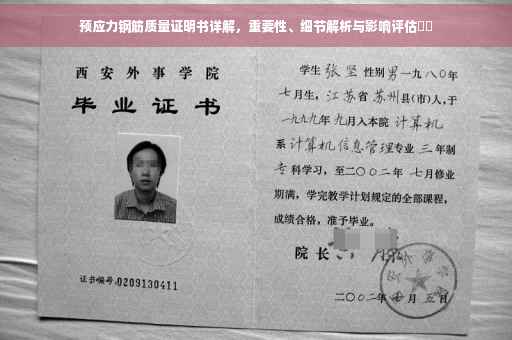 预应力钢筋质量证明书详解，重要性、细节解析与影响评估
西安外事学院
毕业证书
证书编号:0209130411
学生张坚性别男一九八〇年
七月生，江苏省苏州县(市)人,于
一九九九年九月入本院计算机
系计算机信息管理专业三年制
专科学习，至二〇〇二年七月修业
期满，学完教学计划规定的全部课程，
成绩合格，准予毕业。
院长
二〇〇二年 月五日